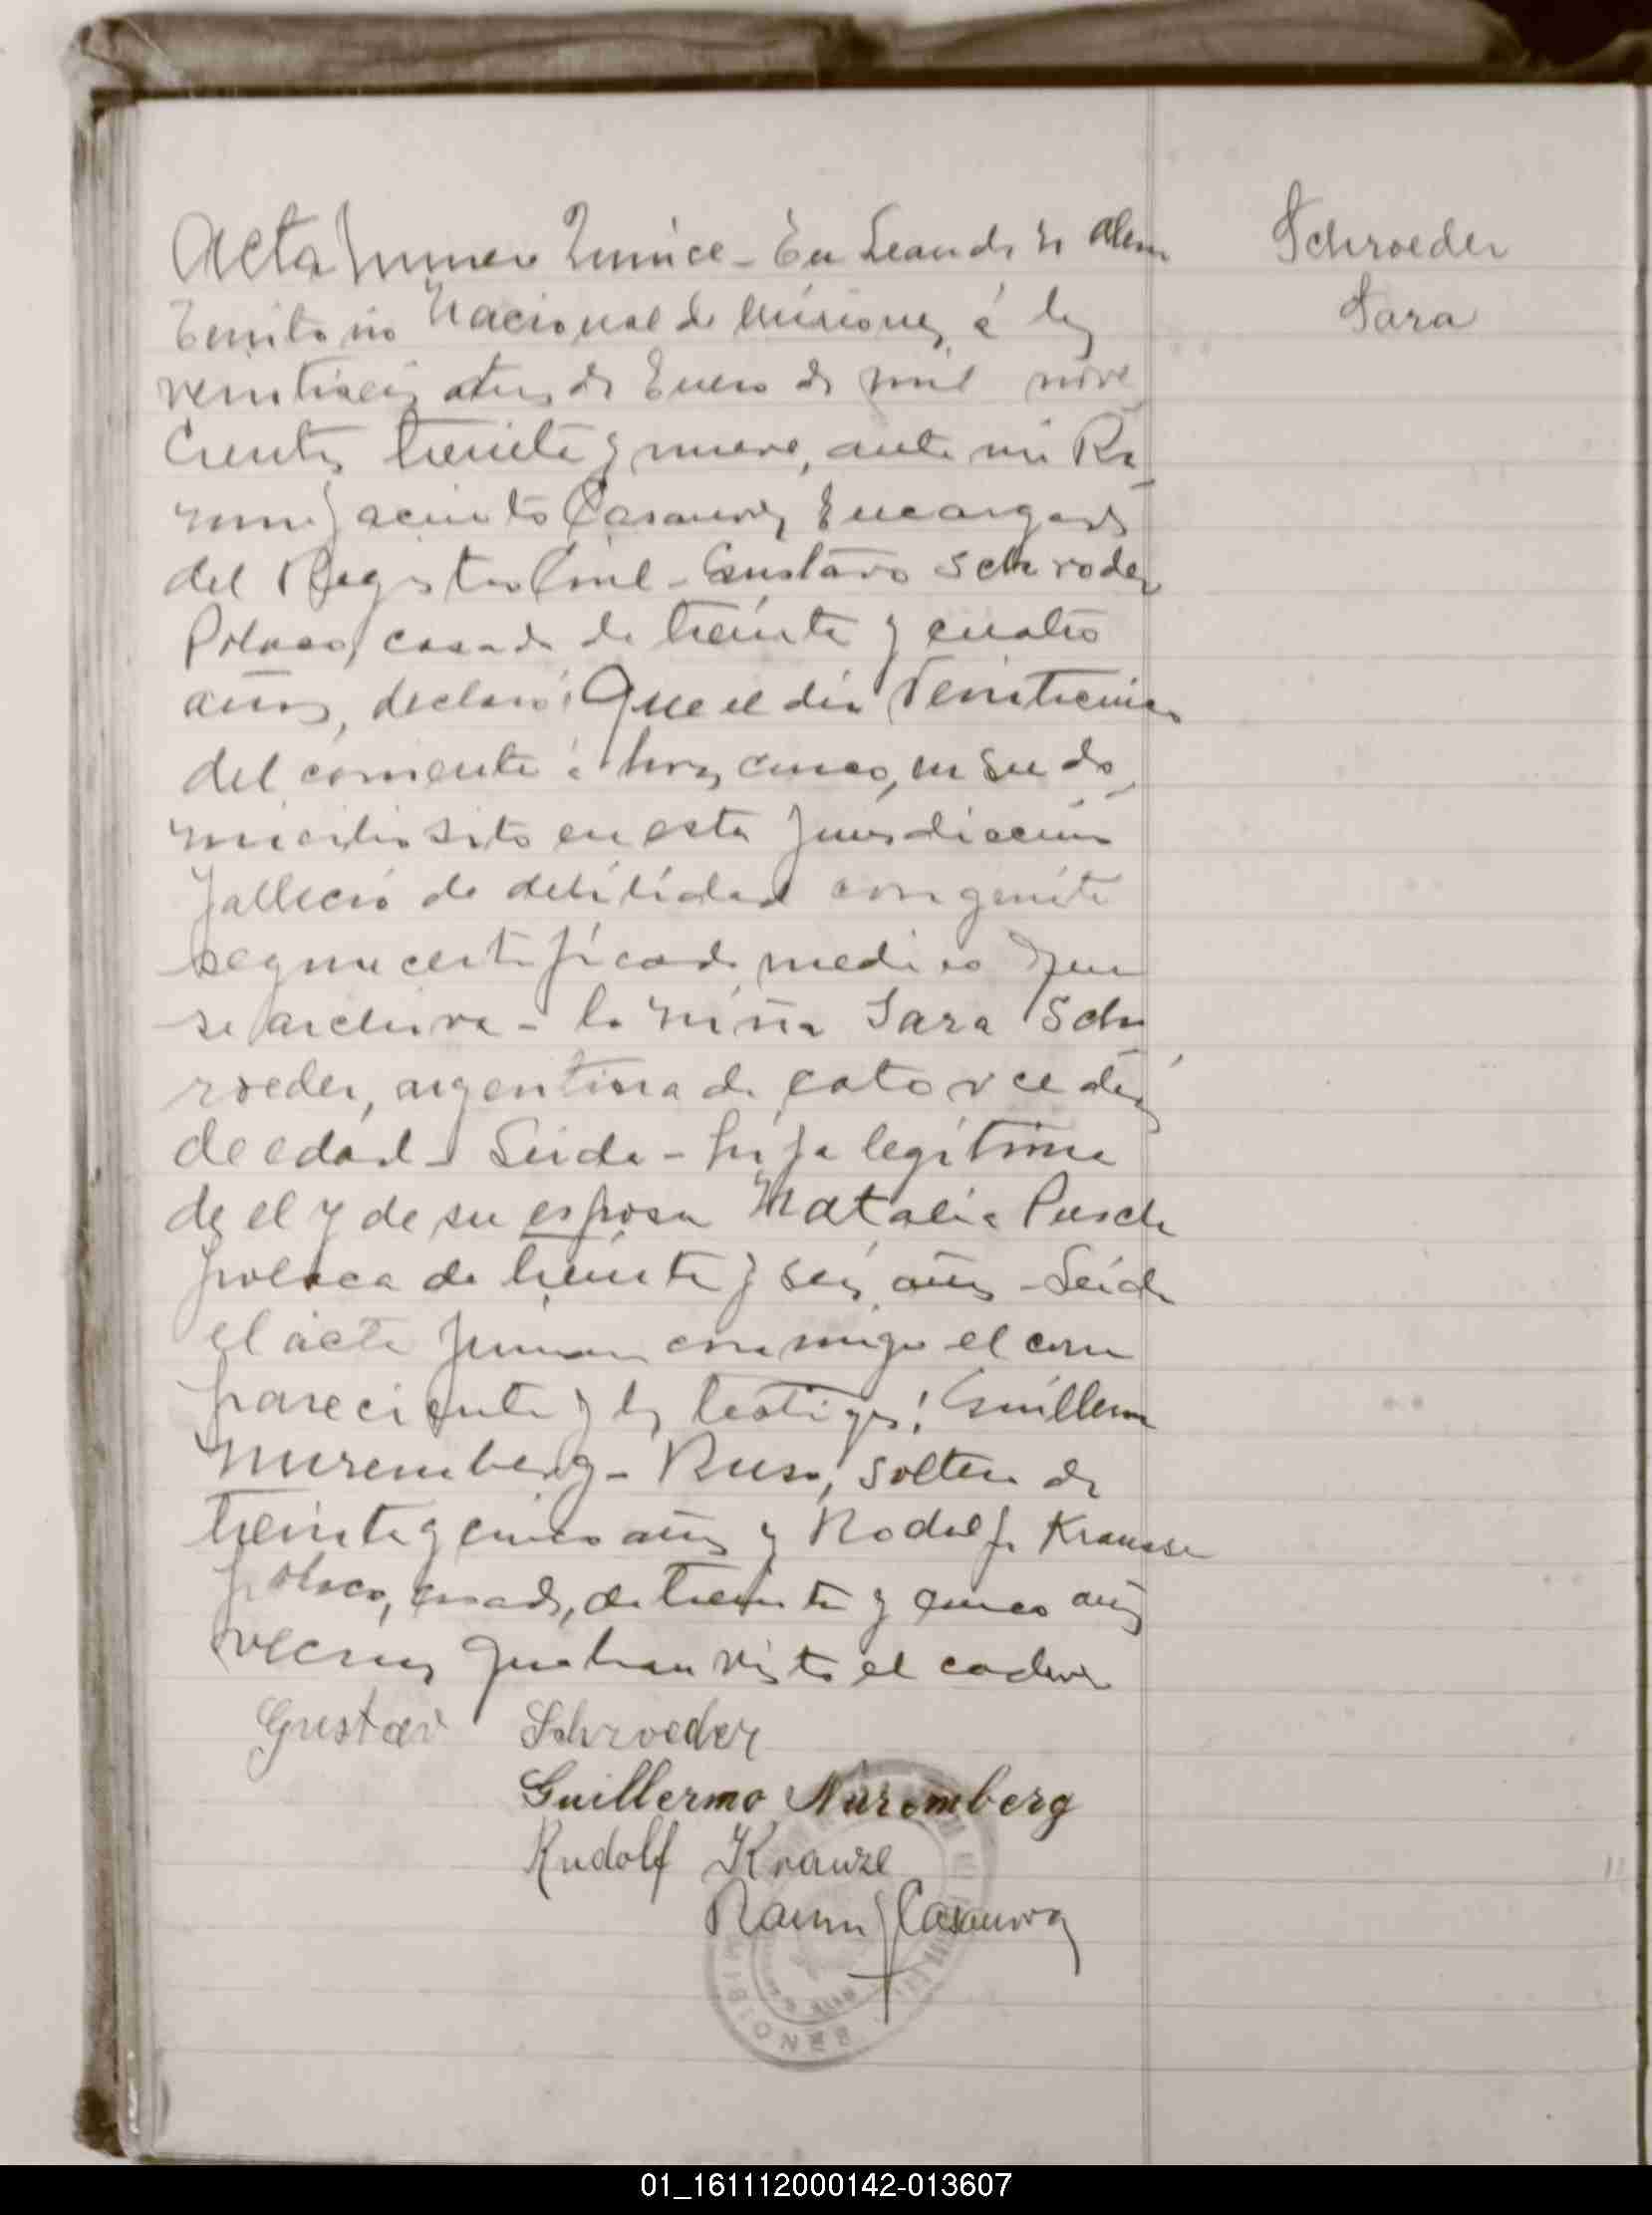 Acta Numero Quince - En Leandro N Alem
Schroeder
Sara
Territorio Nacional de Misiones, á los
veintiseis dias de Enero de mil nove
cientos treinta y nueve, ante mi Ra-
mon Jacinto Casanova, Encargado
del Registro Civil - Gustavo Schroder
Polaco, casado de treinta y cuatro
años, declaró: Que el dia Veinticinco
del corriente á horas cinco, en su do-
micilio sito en esta Jurisdiccion
falleció de debilidad congenita
segun certificado medico que
se archiva - la niña Sara Sch
roeder, argentina de catorce dias
de edad - Leida - hija legitima
de el y de su esposa Natalia Pusch
polaca de treinta y seis años - Leida
el acta firman conmigo el com
pareciente y los testigos: Guillermo
Nuremberg - Ruso, soltero de
treinta y cinco años y Rodolfo Krausse
polaco, casado, de treinta y cinco años
vecinos que han visto el cadaver
Gustav Schroeder
Guillermo Nuremberg
Rudolf Krauze
Ramon J Casanova
MISIONES
01_161112000142-013607